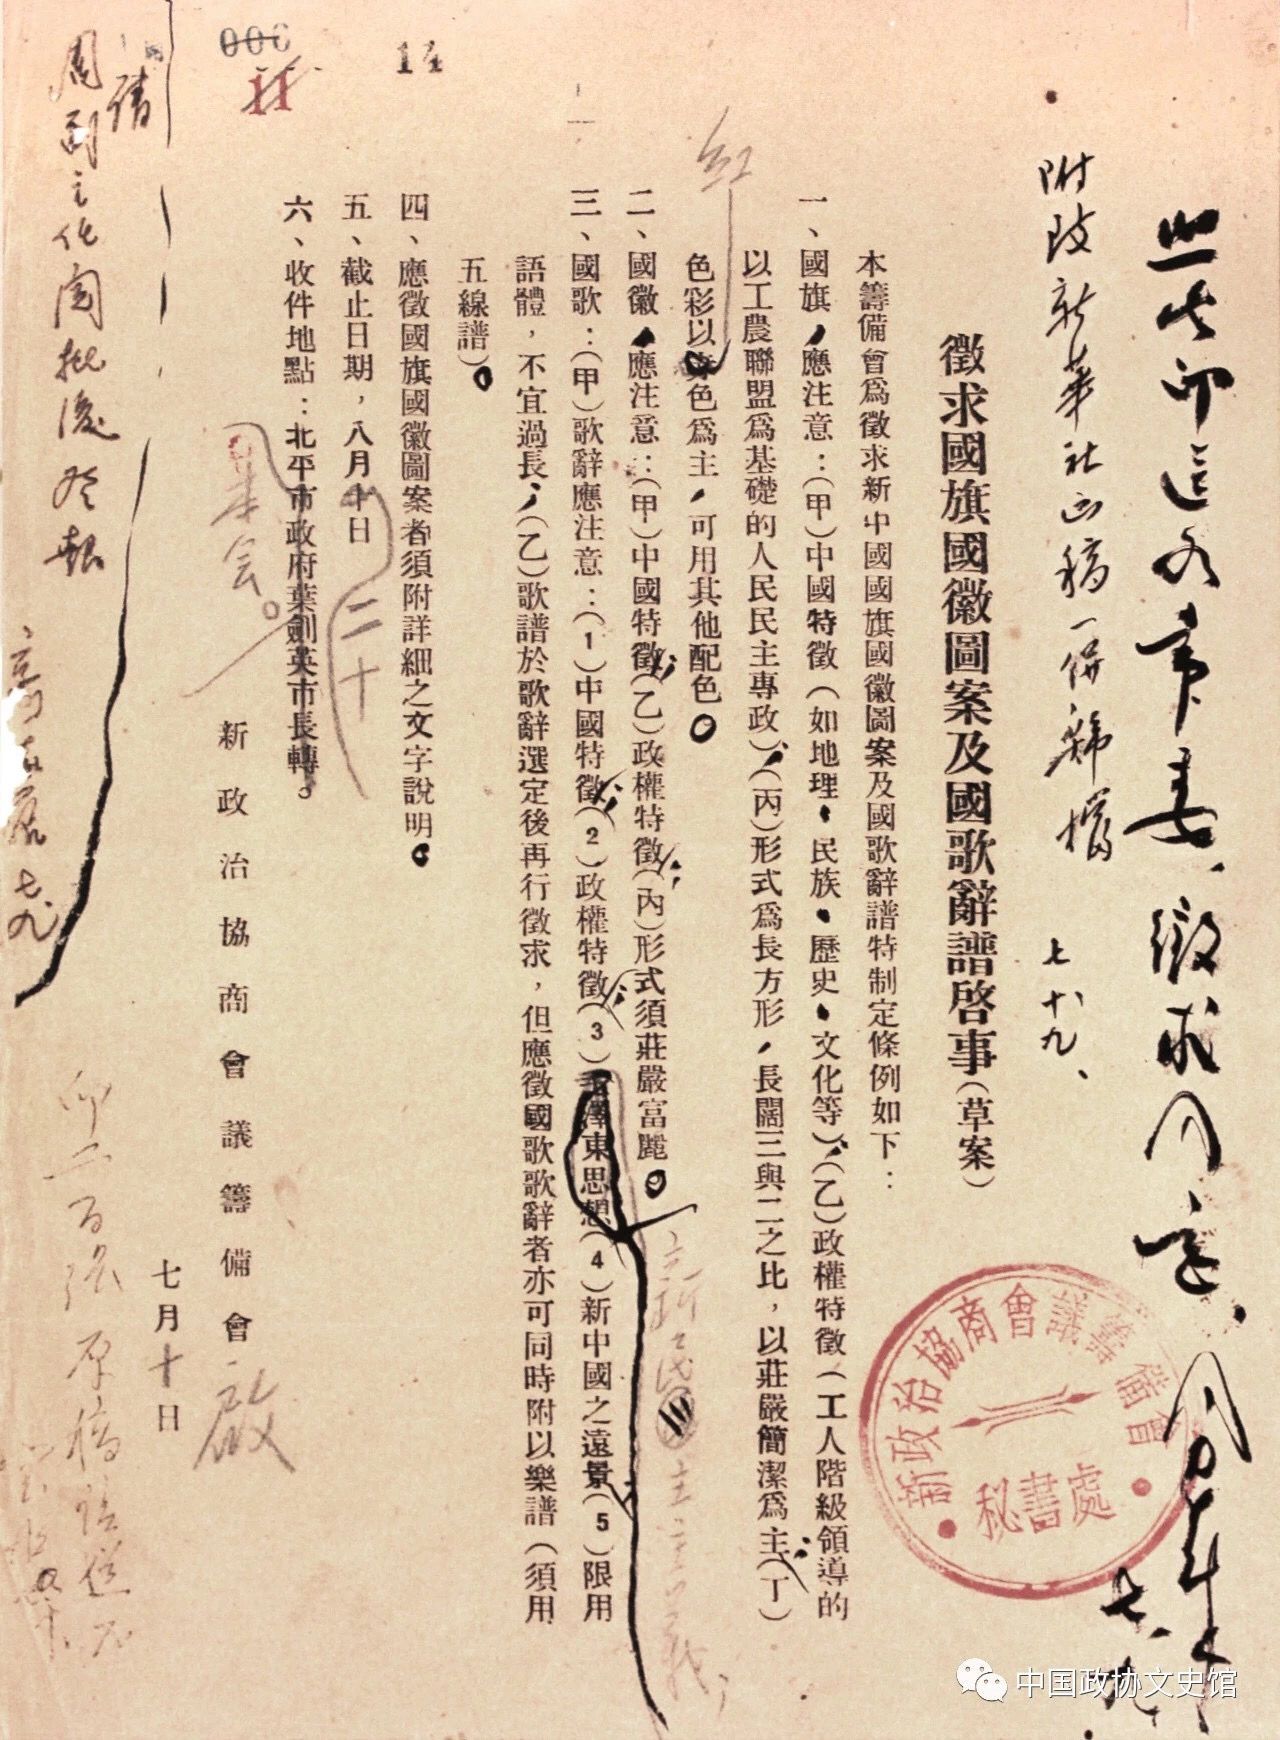 照此印送各常委、徵求同意、
周恩來
七、九
附改新華社正稿一併歸檔
七、十九、
徵求國旗國徽圖案及國歌辭譜啓事(草案)
本籌備會爲徵求新中國國旗國徽圖案及國歌辭譜特制定條例如下：
一、國旗，應注意：(甲)中國特徵（如地理・民族・歷史・文化等）；(乙)政權特徵（工人階級領導的
以工農聯盟爲基礎的人民民主專政）；(丙)形式爲長方形，長闊三與二之比，以莊嚴簡潔爲主；(丁)
色彩以
紅
色爲主，可用其他配色。
二、國徽，應注意：(甲)中國特徵；(乙)政權特徵；(丙)形式須莊嚴富麗。
三、國歌：(甲)歌辭應注意：(1)中國特徵；(2)政權特徵；(3)毛澤東思想(4)新中國之遠景；(5)限用
新民主主義；
語體，不宜過長；(乙)歌譜於歌辭選定後再行徵求，但應徵國歌歌辭者亦可同時附以樂譜（須用
五線譜）。
四、應徵國旗國徽圖案者須附詳細之文字說明。
五、截止日期，八月十日
二十
六、收件地點：北平市政府葉劍英市長轉。
本会。
新政治協商會議籌備會
啟
七月十日
請
周副主化閱批後
七九
印二百張原稿請送
006
11
14
新政治協商會議籌備會
秘書處
中国政协文史馆